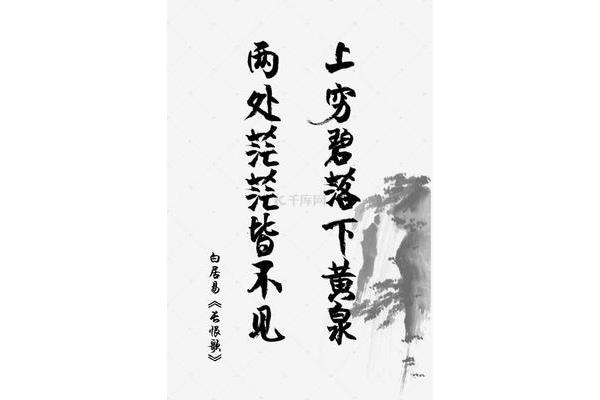 上穷碧落下黄泉
两处茫茫皆不见
白居易《长恨歌》
千库网